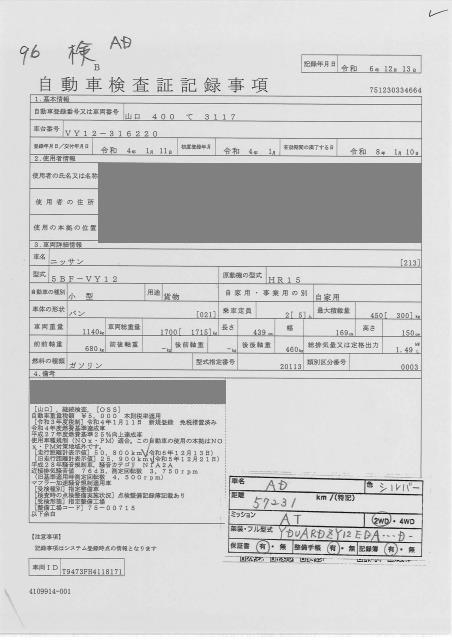 96 検 AD
B
記録年月日 令和 6年 12月 13日
自動車検査証記録事項
751230334664
1. 基本情報
自動車登録番号又は車両番号 山口 400 て 3117
車台番号 VY12-316220
登録年月日／交付年月日 令和 4年 1月 11日 初度登録年月 令和 4年 1月 有効期間の満了する日 令和 8年 1月 10日
2. 使用者情報
使用者の氏名又は名称
使用者の住所
使用の本拠の位置
3. 車両詳細情報
車名 ニッサン [213]
型式 5BF-VY12 原動機の型式 HR15
自動車の種別 小型 用途 貨物 自家用・事業用の別 自家用
車体の形状 バン [021] 乗車定員 2[ 5]人 最大積載量 450[ 300]kg
車両重量 1140kg 車両総重量 1700[ 1715]kg 長さ 439cm 幅 169cm 高さ 150cm
前前軸重 680kg 前後軸重 -kg 後前軸重 -kg 後後軸重 460kg 総排気量又は定格出力 1.49
燃料の種類 ガソリン 型式指定番号 20113 類別区分番号 0003
4. 備考
[山口], 継続検査, [OSS]
自動車重量税額 ¥5,000 本則税率適用
[令和3年度税制] 令和4年1月11日 新規登録 免税措置済み
令和4年度燃費基準達成車
平成27年度燃費基準25%向上達成車
使用車種規制(NOx・PM)適合, この自動車の使用の本拠はNO
x・PM対策地域外です。
[走行距離計表示値] 50,800km(令和6年12月13日)
[旧走行距離計表示値] 25,900km(令和5年12月21日)
平成28年騒音規制車, 騒音カテゴリ N1A2A
近接排気騒音値 76dB, 測定回転数 3,750rpm
(旧基準適用時測定回転数 4,500rpm)
マフラー加速騒音規制適用車
[受検種別] 指定整備車
[検査時の点検整備実施状況] 点検整備記録簿記載あり
[受検形態] 指定整備工場
[整備工場コード] 75-00715
以下余白
車名 AD 色 シルバー
距離 57231 km / (特記)
ミッション AT 2WD・4WD
架装・フル型式
保証書 有・無 整備手帳 有・無 記録簿 有・無
[注意事項]
記録事項はシステム登録時点の情報となります
車両ID T9473FH4118171
4109914-001